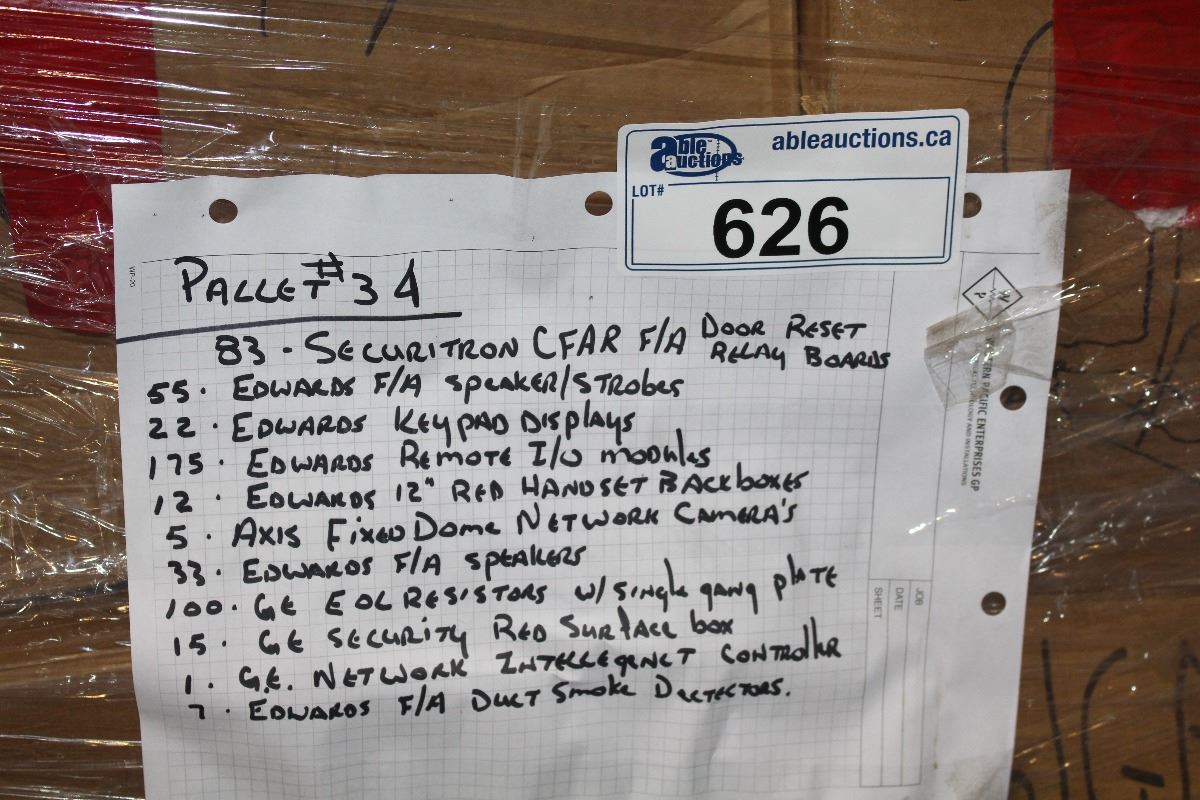 able auctions
ableauctions.ca
LOT#
626
WP-20
PALLET #34
83 - SECURITRON CFAR F/A DOOR RESET RELAY BOARDS
55 · EDWARDS F/A SPEAKER/STROBES
22 · EDWARDS KEYPAD DISPLAYS
175 · EDWARDS REMOTE I/O MODULES
12 · EDWARDS 12" RED HANDSET BACKBOXES
5 · AXIS FIXED DOME NETWORK CAMERA'S
33 · EDWARDS F/A SPEAKERS
100 · GE EOL RESISTORS W/ SINGLE GANG PLATE
15 · GE SECURITY RED SURFACE BOX
1 · G.E. NETWORK INTELLEGENCT CONTROLLER
7 · EDWARDS F/A DUCT SMOKE DECTECTORS.
PACIFIC ENTERPRISES GP
AND INSTALLATIONS
JOB
DATE
SHEET